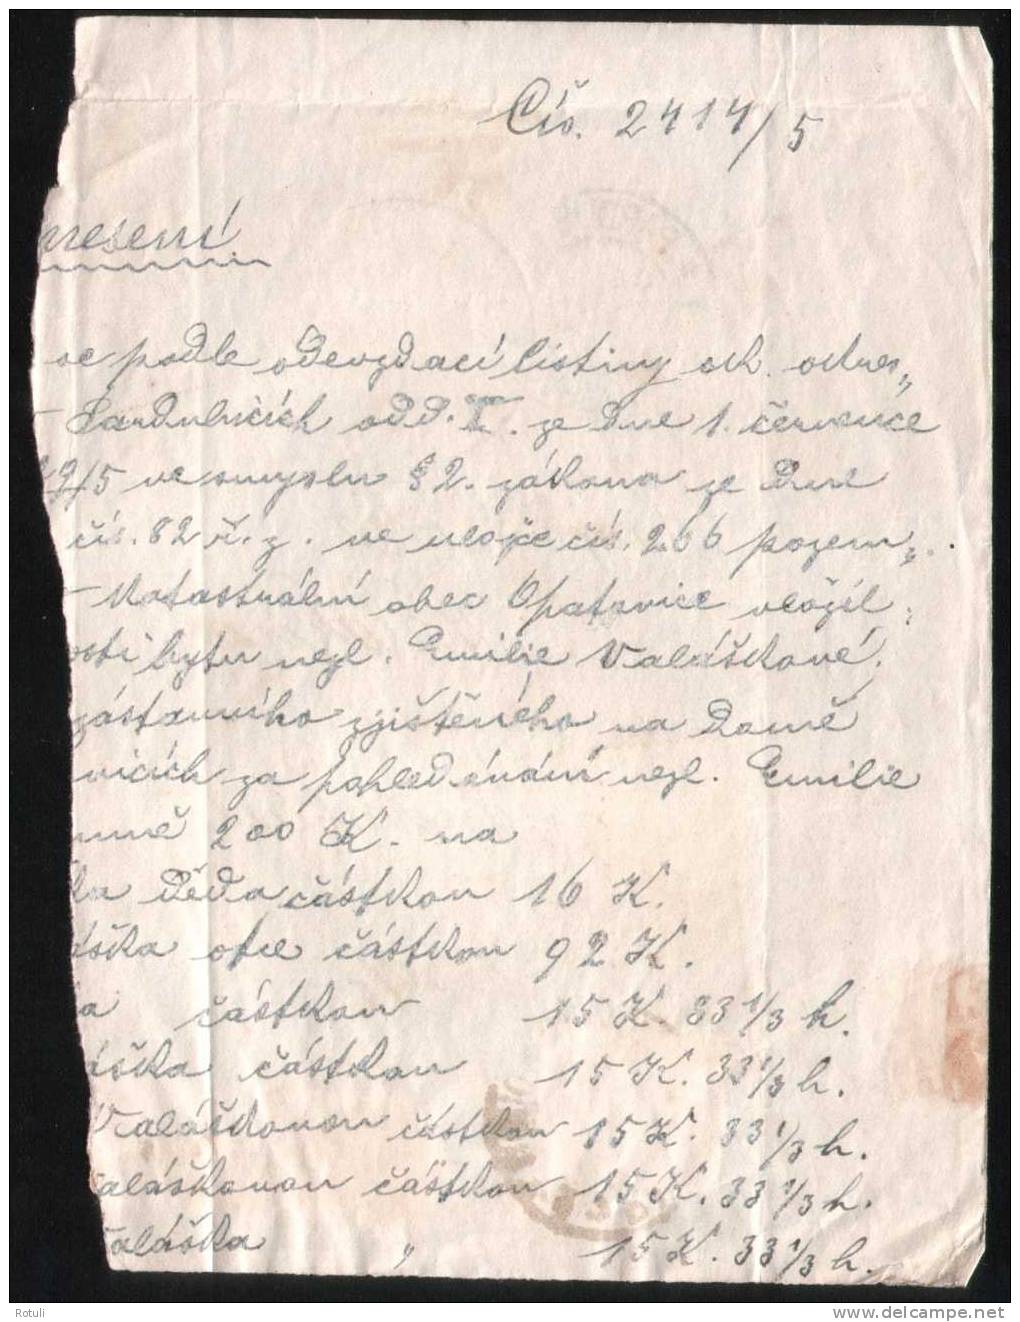 Čís. 2414/5
nesení
se podle odevzdací listiny ok. okres„
Pardubicích odd. I. ze dne 1. července
5 ve smyslu § 2. zákona ze dne
čís. 82 ř. z. ve vložce čís. 266 pozem„
Katastrální obec Opatovice vložil
osti bytu nezl. Emilie Valáškové,
zástavního zjištěného na domě
vicích za pohledávání nezl. Emilie
200 K. na
ka děda částkou 16 K.
áška otce částkou 92 K.
a částkou 15 K. 33 1/3 h.
áška částkou 15 K. 33 1/3 h.
Valáškovou částkou 15 K. 33 1/3 h.
aláškovou částkou 15 K. 33 1/3 h.
aláška „ 15 K. 33 1/3 h.
Rotuli
http://www.delcampe.net